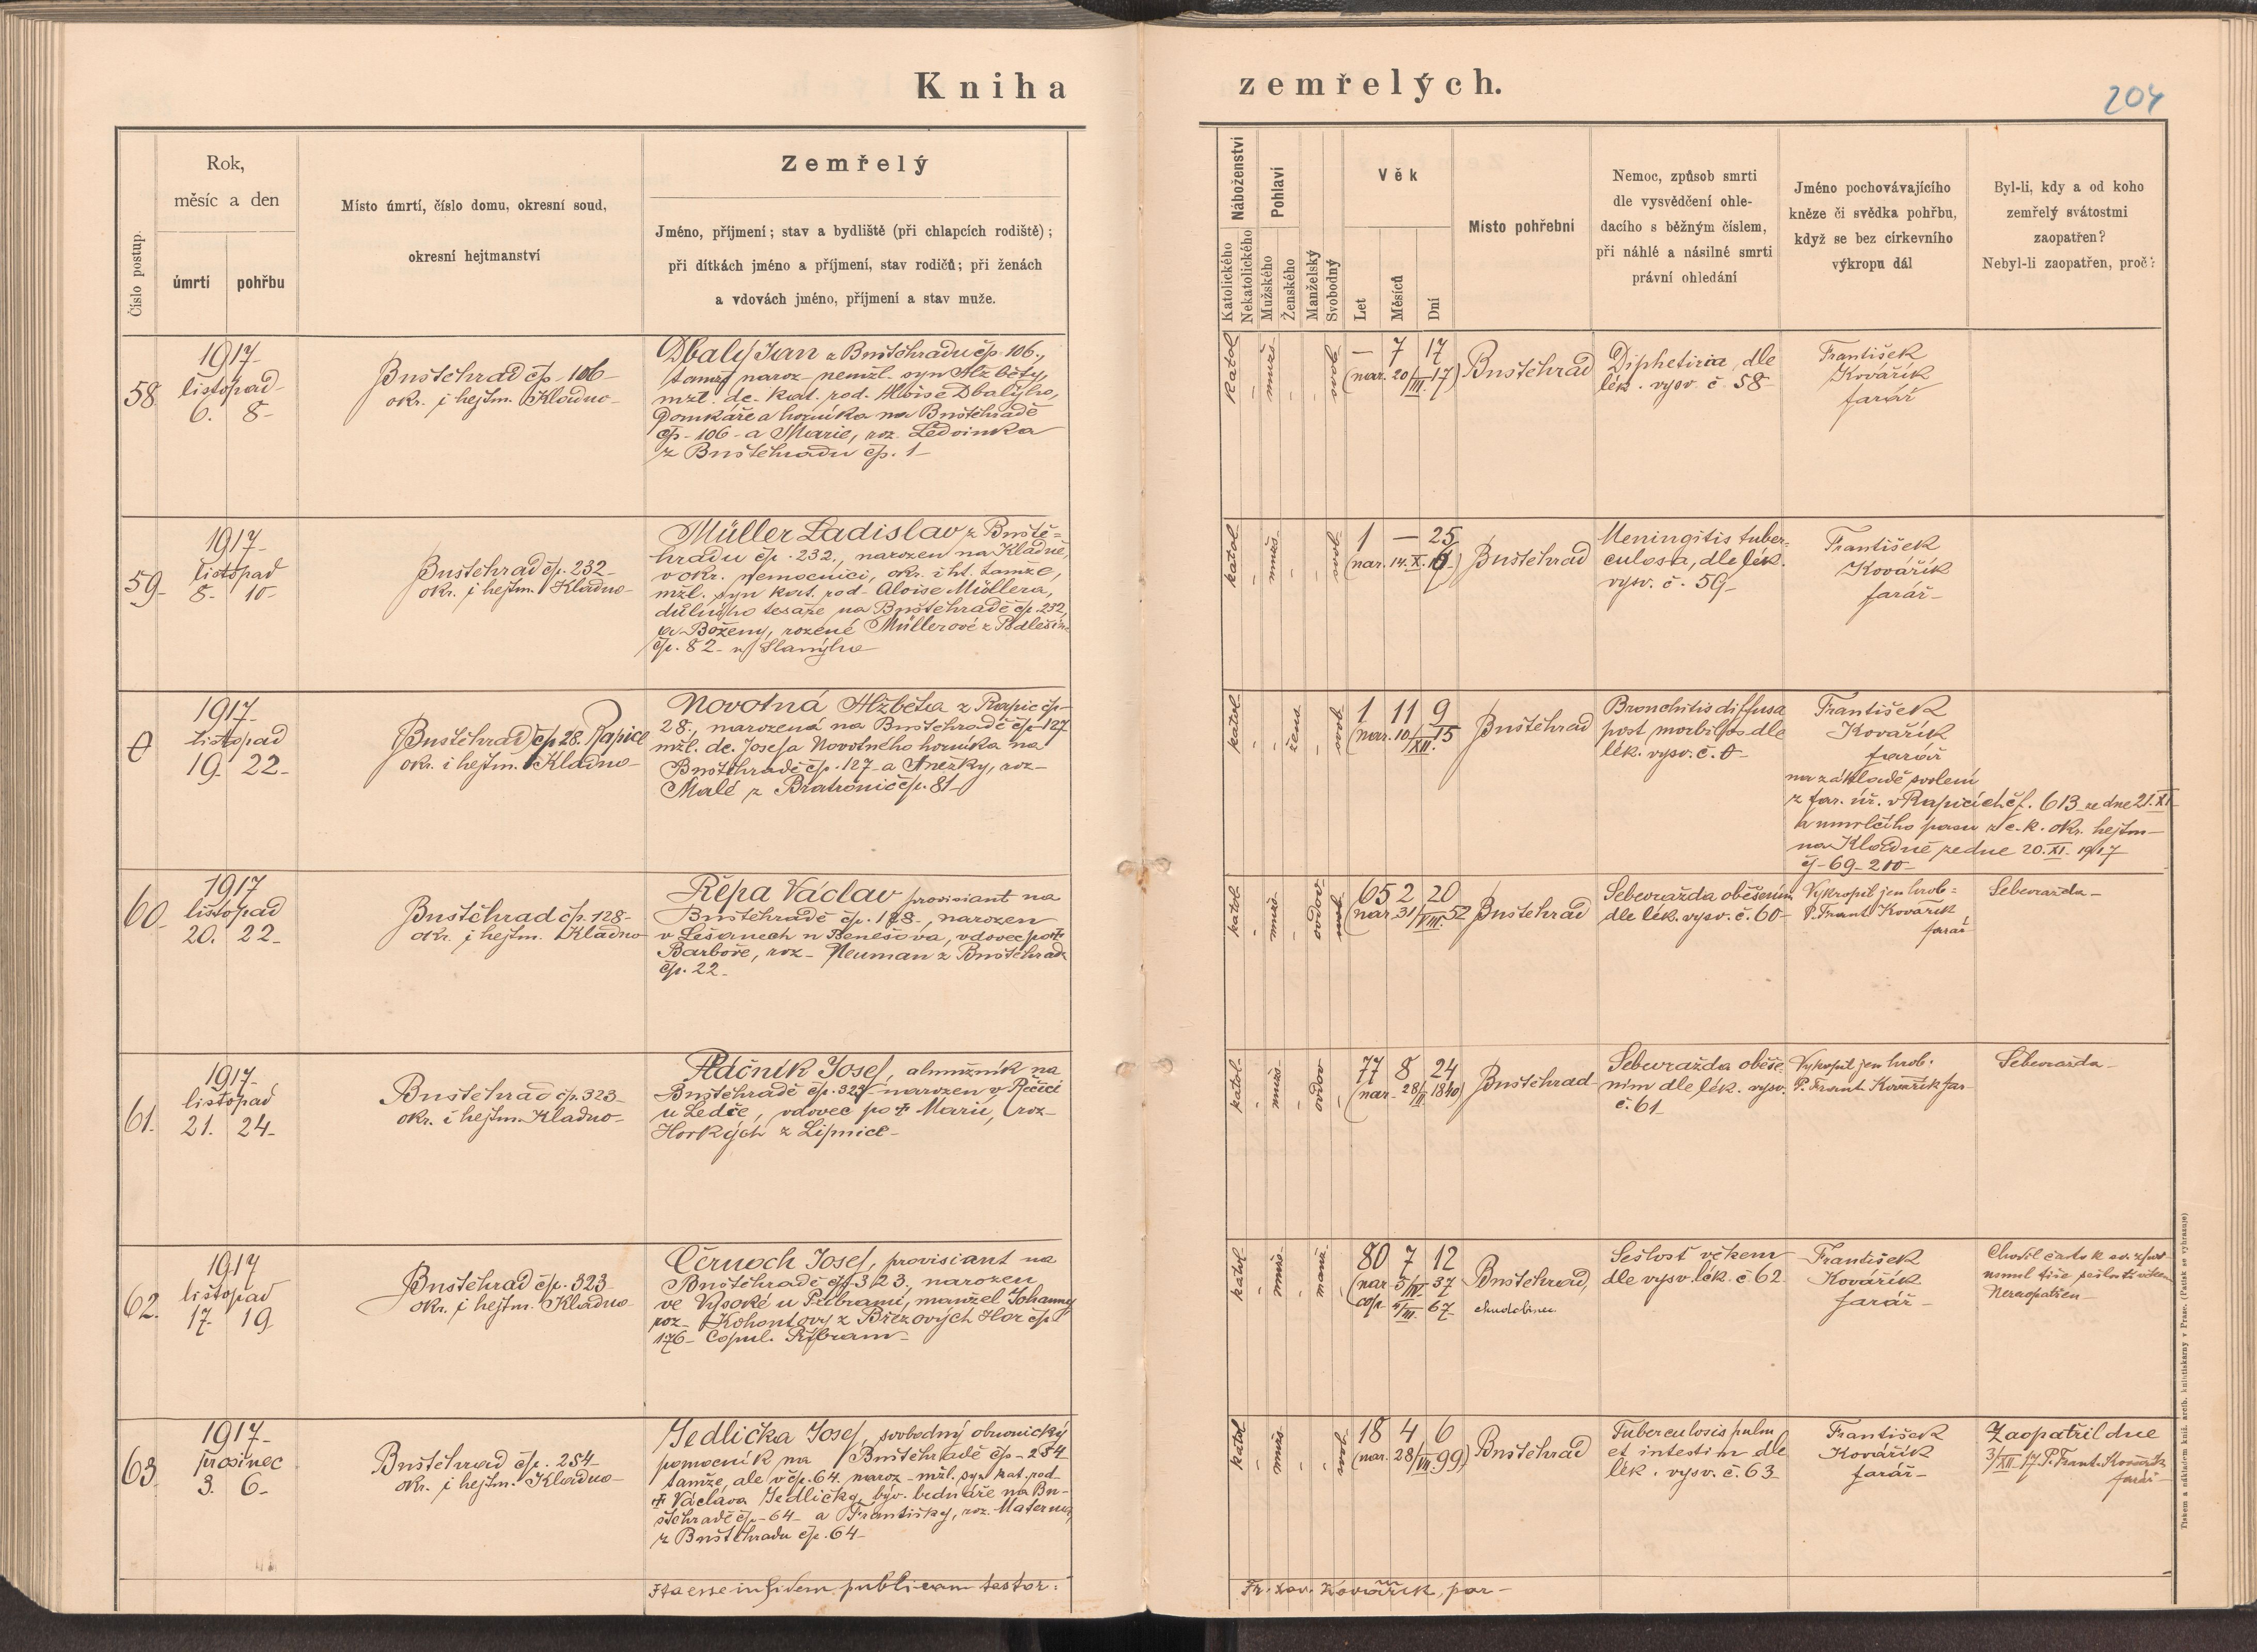 Kniha zemřelých.
204
Číslo postup.
Rok,
měsíc a den
úmrtí
pohřbu
Místo úmrtí, číslo domu, okresní soud,
okresní hejtmanství
Zemřelý
Jméno, příjmení; stav a bydliště (při chlapcích rodiště);
při dítkách jméno a příjmení, stav rodičů; při ženách
a vdovách jméno, příjmení a stav muže.
Náboženství
Katolického
Nekatolického
Pohlaví
Mužského
Ženského
Manželský
Svobodný
Věk
Let
Měsíců
Dní
Místo pohřební
Nemoc, způsob smrti
dle vysvědčení ohle-
dacího s běžným číslem,
při náhlé a násilné smrti
právní ohledání
Jméno pochovávajícího
kněze či svědka pohřbu,
když se bez církevního
výkropu dál
Byl-li, kdy a od koho
zemřelý svátostmi
zaopatřen?
Nebyl-li zaopatřen, proč?
58.
1917-
listopad-
6. 8-
Buštěhrad čp- 106-
okr. i hejtm. Kladno-
Dbalý Jan z Buštěhradu čp. 106.,
tamž naroz- nemžl. syn Alžběty,
mžl. dc. kat. rod. Aloise Dbalýho,
Domkáře a horníka na Buštěhradě
čp- 106- a Marie, roz. Ledvinka
z Buštěhradu čp. 1-
katol
mužs-
svob
— 7 17
(nar. 20/III.-17)
Buštěhrad
Diphetiria, dle
lék. vysv. č. 58-
František
Kovářík
farář
59-
1917-
listopad
8- 10-
Buštěhrad čp. 232-
okr. i hejtm. Kladno-
Müller Ladislav z Buště-
hradu čp. 232., narozen na Kladně,
v okr. nemocnici, okr. i ht. tamže,
mžl. syn kat. rod- Aloise Müllera,
důlního tesaře na Buštěhradě čp. 232,
a Boženy, rozené Müllerové z Podlešín-
čp. 82- u Slanýho
katol-
mužs-
svob
1 — 25
(nar. 14. X. 16)
Buštěhrad
Meningitis tuber-
culosa, dle lék.
vysv. č. 59-
František
Kovářík
farář-
0
1917-
listopad
19. 22-
Buštěhrad čp 28. Rapice
okr. i hejtm. Kladno-
Novotná Alžběta z Rapic čp-
28., narozená na Buštěhradě čp- 127
mžl. dc. Josefa Novotného horníka na
Buštěhradě čp. 127- a Anežky, roz-
Malé z Bratronic čp. 81-
katol-
žens-
svob-
1 11 9
(nar. 10/XII. 15
Buštěhrad
Bronchitis diffusa
post morbillos dle
lék. vysv. č. 0-
František
Kovářík
farář
na základě svolení
z far. úř. v Rapicích čj. 613 ze dne 21. XI-
a umrlčího pasu z c.k. okr. hejtm-
na Kladně ze dne 20. XI. 1917
čj- 69-200-
60-
1917
listopad
20. 22-
Buštěhrad čp. 128-
okr. i hejtm. Kladno
Řepa Václav provisiant na
Buštěhradě čp. 128-, narozen
v Lešanech u Benešova, vdovec po †
Barboře, roz- Neuman z Buštěhrad-
čp. 22-
katol-
mužs-
vdov-
svob-
65 2 20
(nar 31/VIII. 52
Buštěhrad
Sebevražda oběšením
dle lék. vysv. č. 60-
Vykropil jen hrob-
P. Frant Kovářík
farář
Sebevražda-
61.
1917-
listopad
21. 24-
Buštěhrad čp. 323-
okr. i hejtm. Kladno-
Ptáčník Josef, almužník na
Buštěhradě čp. 323- narozen v Řečici
u Ledče, vdovec po † Marii, roz-
Horkých z Lipnice-
katol-
mužs-
vdov
77 8 24
(nar- 28/II. 1840)
Buštěhrad-
Sebevražda oběše-
ním dle lék. vysv.
č. 61-
Vykropil jen hrob.
P. Frant Kovářík far-
Sebevražda-
62.
1917
listopad
17- 19
Buštěhrad čp. 323-
okr. i hejtm. Kladno-
Černoch Josef, provisiant na
Buštěhradě čp 323, narozen
ve Vysoké u Příbrami, manžel Johanny
roz- Kohoutovy z Březových Hor čp
176- Copul. Příbram-
katol
mužs-
manž-
80 7 12
(nar 5/IV- 37
cop. 5/III. 67
Buštěhrad,
chudobinec
Sešlost věkem
dle vysv. lék. č 62
František
Kovářík
farář-
Chodil často k sv. zpov-
Nezaopatřen-
63.
1917-
prosinec
3. 6-
Buštěhrad čp. 254-
okr. i hejtm. Kladno-
Jedlička Josef, svobodný obuvnický
pomocník na Buštěhradě čp- 254
tamže, ale v čp. 64. naroz- mžl. syn kat. rod-
† Václava Jedličky, býv. bednáře na Bu-
štěhradě čp- 64- a Františky, roz. Materna,
z Buštěhradu čp. 64-
katol
mužs-
svob-
18 4 6
(nar. 28/VII. 99)
Buštěhrad
Tuberculosis pulm
et intestin dle
lék. vysv. č. 63-
František
Kovářík
farář-
Zaopatřil dne
3/XII-17 P. Frant. Kovářík
farář-
Ita esse in fidem publicam testor:
Fr. Xav. Kovářík, par-
Tiskem a nákladem kníž. arcib. knihtiskárny v Praze. (Patisk se vyhrazuje)